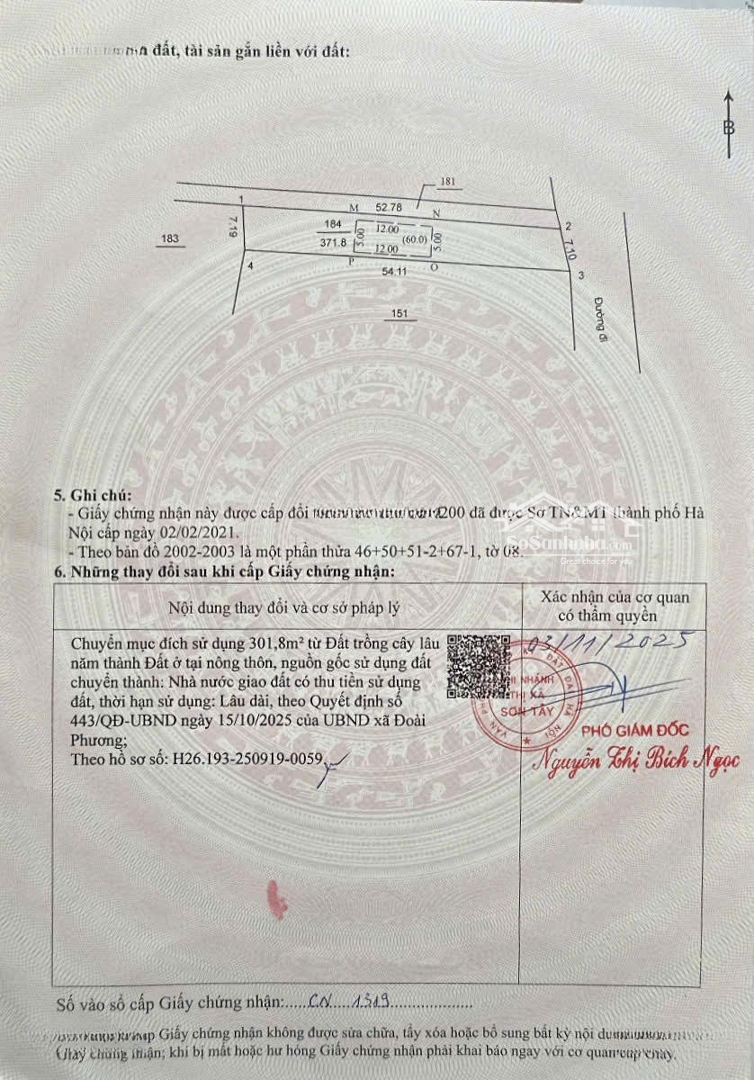 đất, tài sản gắn liền với đất:
B
181
1
M
52.78
N
2
7.19
184
12.00
183
371.8
5.00
(60.0)
5.00
7.10
12.00
4
P
54.11
O
3
151
Đường đi
5. Ghi chú:
- Giấy chứng nhận này được cấp đổi 200 đã được Sơ TN&MT thành phố Hà
Nội cấp ngày 02/02/2021.
- Theo bản đồ 2002-2003 là một phần thửa 46+50+51-2+67-1, tờ 08.
SoSanhnha.com
Great choice for you
6. Những thay đổi sau khi cấp Giấy chứng nhận:
Nội dung thay đổi và cơ sở pháp lý
Xác nhận của cơ quan
có thẩm quyền
Chuyển mục đích sử dụng 301,8m² từ Đất trồng cây lâu
năm thành Đất ở tại nông thôn, nguồn gốc sử dụng đất
chuyển thành: Nhà nước giao đất có thu tiền sử dụng
đất, thời hạn sử dụng: Lâu dài, theo Quyết định số
443/QĐ-UBND ngày 15/10/2025 của UBND xã Đoài
Phương;
Theo hồ sơ số: H26.193-250919-0059
03/11/2025
CHI NHÁNH
THỊ XÃ
SƠN TÂY
PHÓ GIÁM ĐỐC
Nguyễn Thị Bích Ngọc
Số vào sổ cấp Giấy chứng nhận:.....CN....1319..................
Giấy chứng nhận không được sửa chữa, tẩy xóa hoặc bổ sung bất kỳ nội
chứng nhận; khi bị mất hoặc hư hỏng Giấy chứng nhận phải khai báo ngay với cơ quan cấp